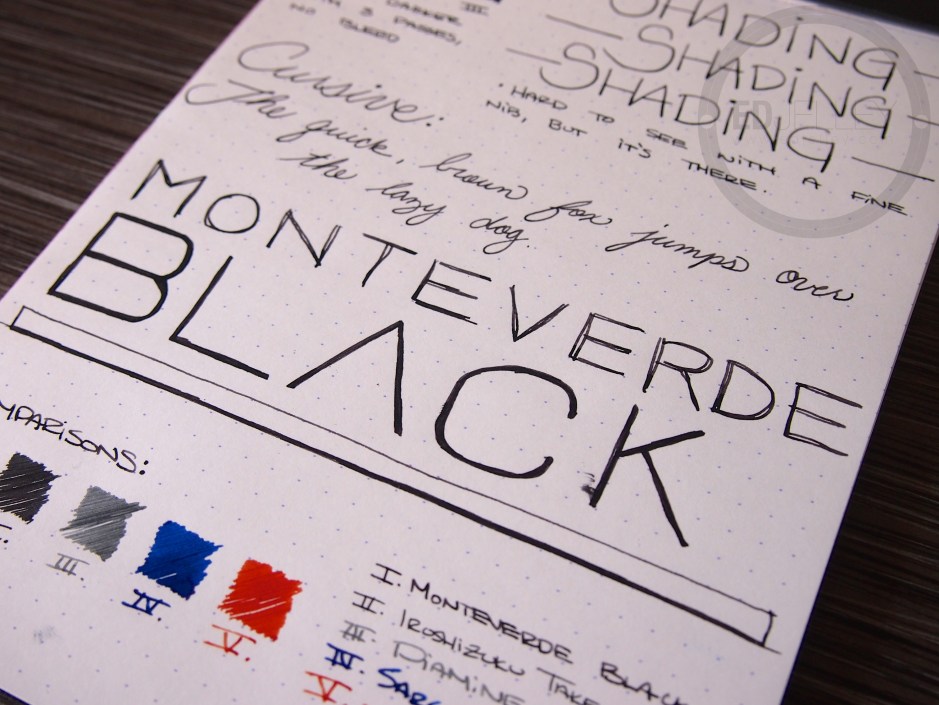 DARKER
3 PASSES,
NO BLEED
III
SHADING
SHADING
SHADING
· HARD TO SEE WITH A FINE
NIB, BUT IT'S THERE.
Cursive:
The quick, brown fox jumps over
the lazy dog.
MONTEVERDE
BLACK
MPARISONS:
III.
IV.
V.
I. MONTEVERDE BLACK
II. IROSHIZUKU TAKE
III. DIAMINE
IV. SAR
V.